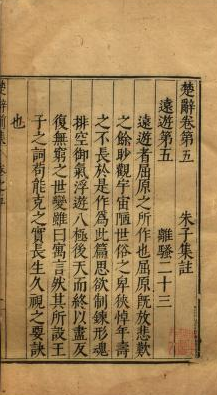 楚辭卷第五　朱子集註
遠遊第五　離騷二十三
遠遊者屈原之所作也屈原既放悲歎
之餘眇觀宇宙陋世俗之卑狹悼年壽
之不長於是作為此篇思欲制鍊形魂
排空御氣浮遊八極後天而終以盡反
復無窮之世變雖曰寓言然其所設王
子之詞苟能充之實長生久視之要訣
也